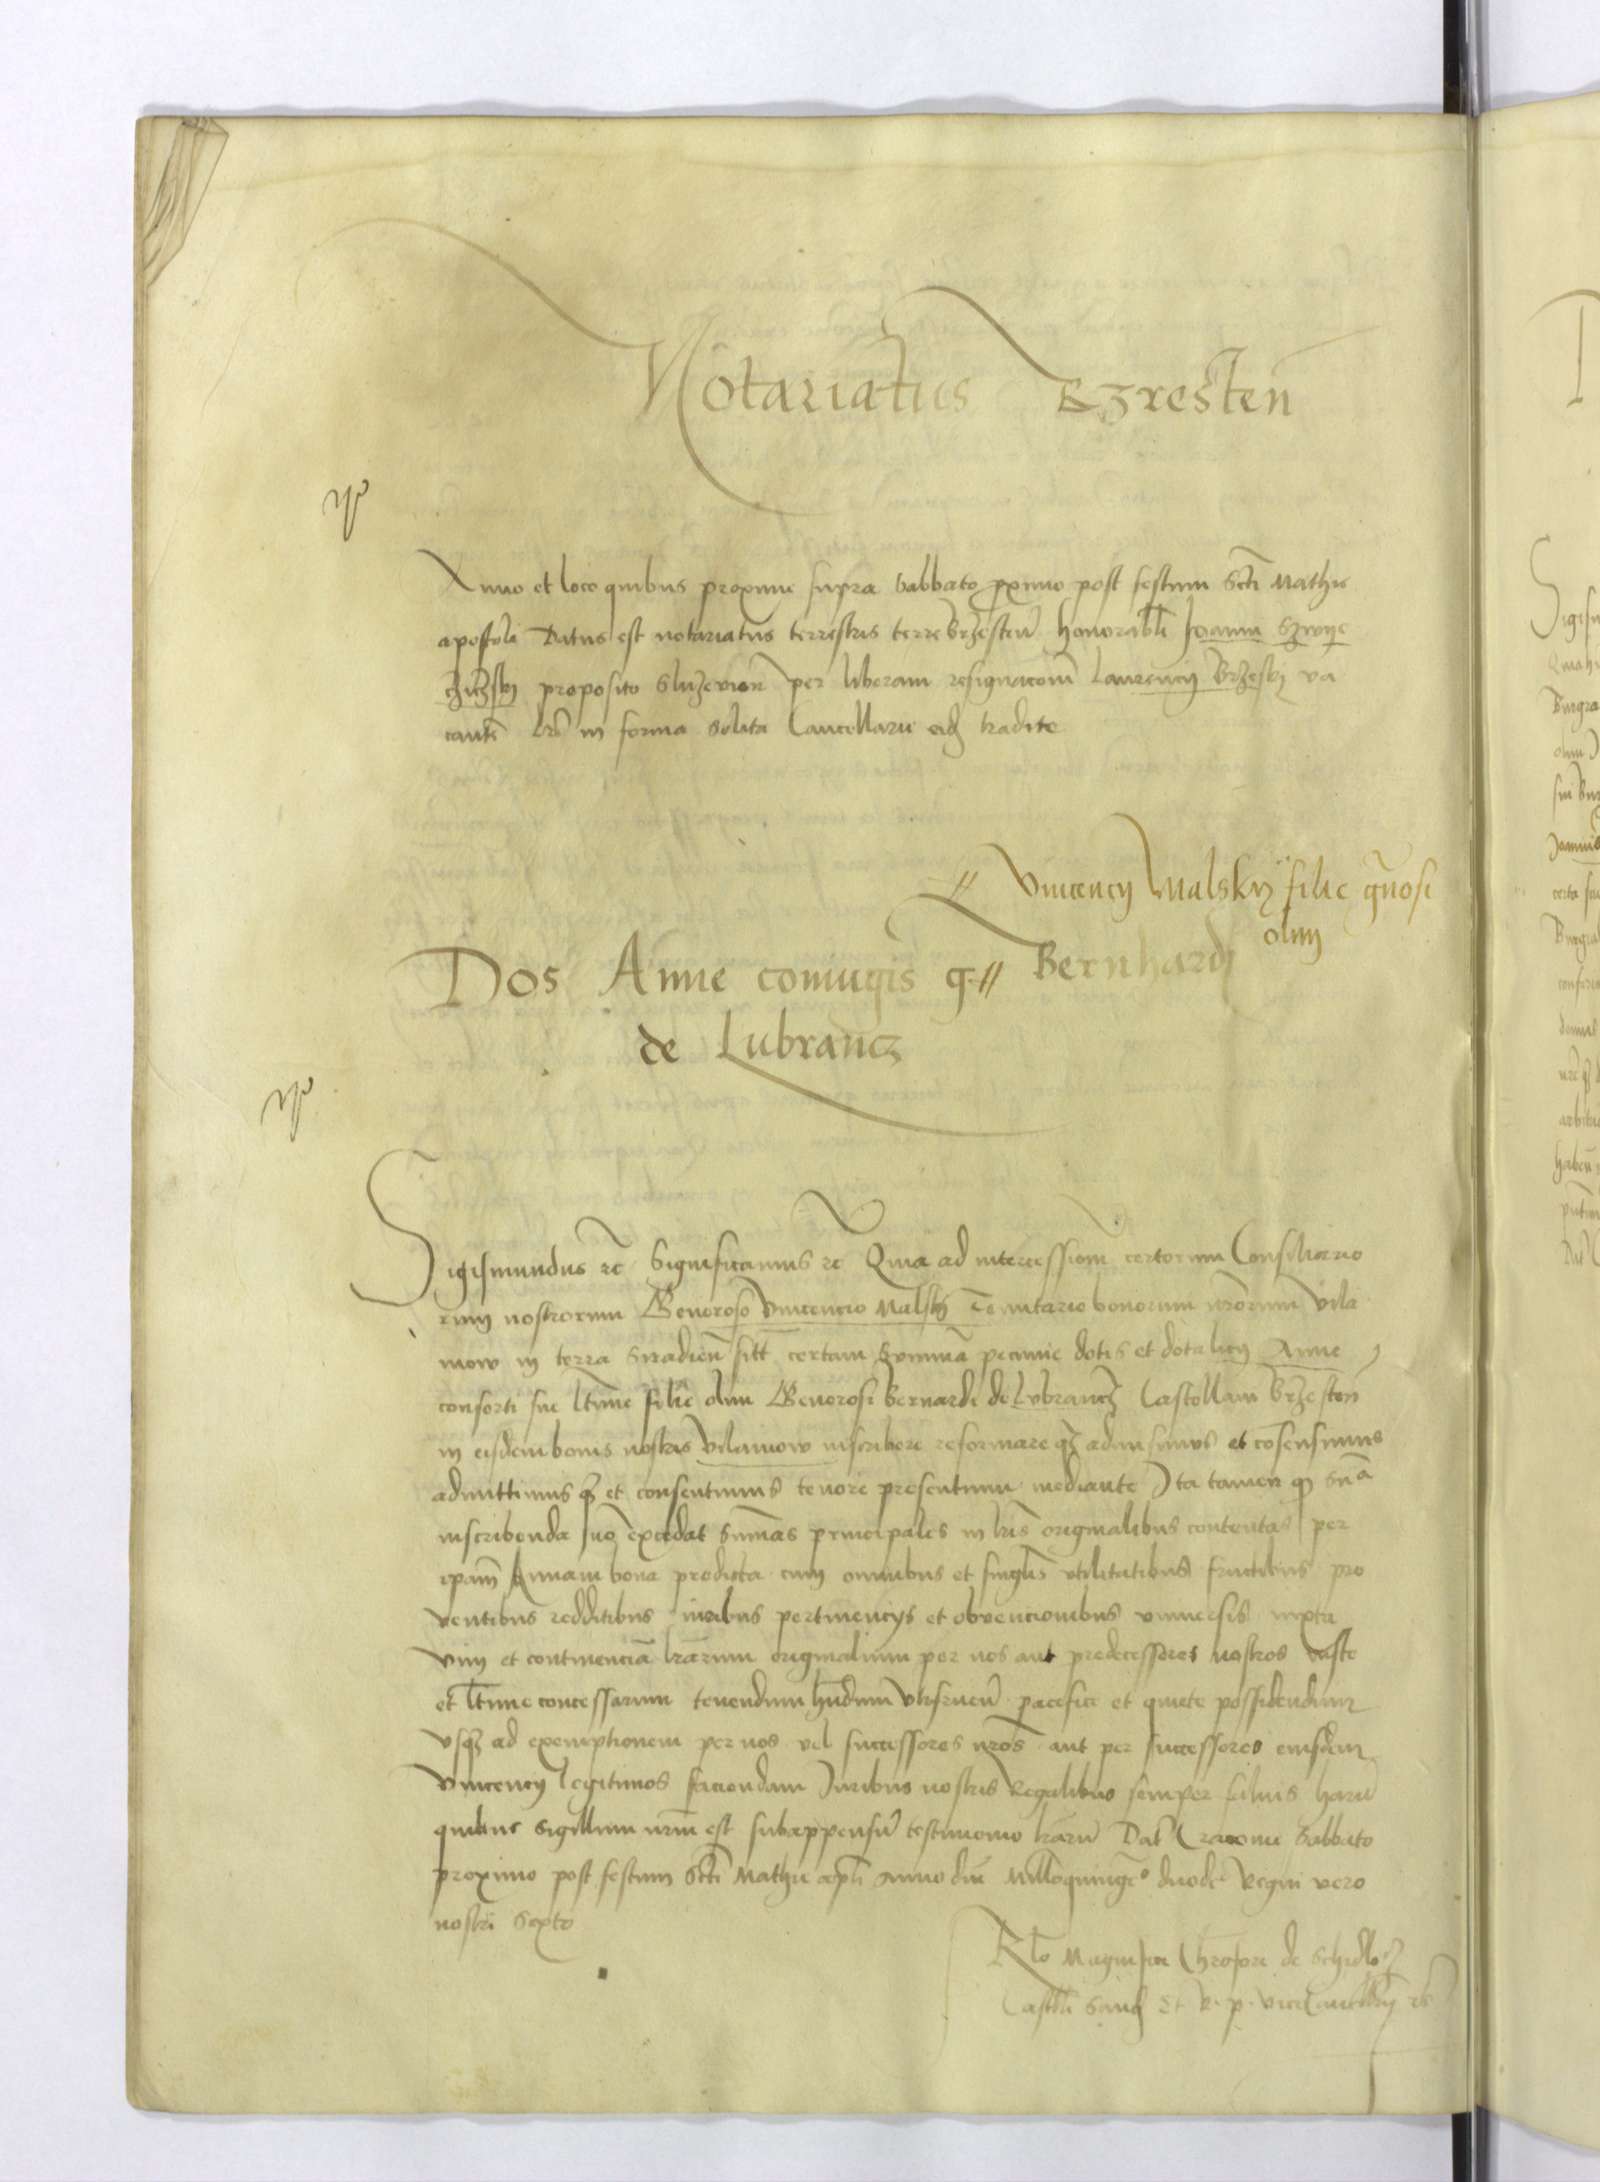 Notariatus Bzresten̄
Anno et loco quibus proxime supra Sabbato p̱ximo post festum Scti Mathie
apostoli Datus est notariatus terrestris terre Brzesten̄ honorabli Joanni
proposito Sluzewien̄ per liberam resignacōm Laurencij Brzesky va
cantē Lrē in forma Solita Cancellarie eidē tradite
// Vincencij Malsky filie gn̄osi
olim
Dos Anne coniugis g. // Bernhardi
de Lubrancz
Sigismundus rc̄ Significamus rc Quia ad intercessionē certorum Consiliario
rum nostrorum Generoso Vincencio Malsky Tenutario bonorum nrōrum Vila
mow in terra Siradien̄ sitt certam Summā pecunie dotis et dotalicij Anne
consorti sue ltīme filie olim Generosi Bernardi de Lubrancz Castellani Brzesten̄
in eisdem bonis nostris Vilamow inscribere reformareqz admisimus et cōsensimus
admittimusqz et consentimus tenore presentium mediante Ita tamen qd sm̄a
inscribenda nō excedat sum̄as principales in lrīs originalibus contentas per
ipam̄ Annam bona predicta cum omnibus et singlīs vtilitatibus fructibus pro
ventibus redditibus pertinencijs et obvencionibus vniuersis iuxta
vim et continenciā lrārum originalium per nos aut predecessores nostros iuste
et ltīme concessarum tenendum hn̄dum vtifruen̄ pacifice et quiete possidendum
vsqz ad exemptionem per nos vel successores nrōs aut per successores eiusdem
Vincencij legitimos faciendam Juribus nostris Regalibus semper saluis harū
quibus Sigillum nrm̄ est subappensū testimonio lrārū Dat Cracouie Sabbato
proximo post festum Scti Mathie apli Anno din̄ Millo quingeo duode Regni vero
nostri Sexto
Rlo Magnifici Chrōfori de Schidlo
Castllī Sand et R. p. viceCancellarij rc̄